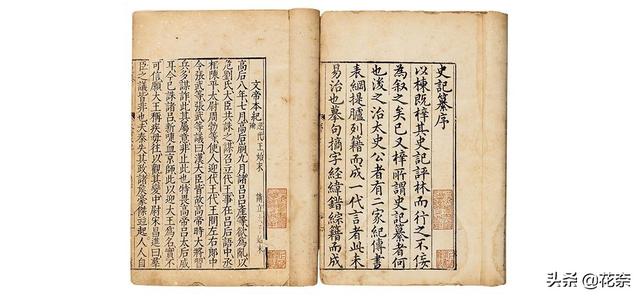 史記纂序
以棟既梓其史記評林而行之不佞
為叙之矣已又梓所謂史記纂者何
也後之治太史公者有二家紀傳書
表綱提臚列籍而成一代言者此未
易治也摹句摘字經緯錯綜籍而成
文帝本紀
迎代王始末
高后八年七月高后崩九月諸呂呂產等欲為亂以
危劉氏大臣共誅之謀召立代王事在呂后語中丞
相陳平太尉周勃等使人迎代王代王問左右郎中
令張武等張武等議曰漢大臣皆故高帝時大將習
兵多謀詐此其屬意非止此也特畏高帝呂太后威
耳今已誅諸呂新喋血京師此以迎大王為名實不
可信願大王稱疾毋往以觀其變中尉宋昌進曰羣
臣之議皆非也夫秦失其政諸侯豪傑並起人人自
头条 @花奈